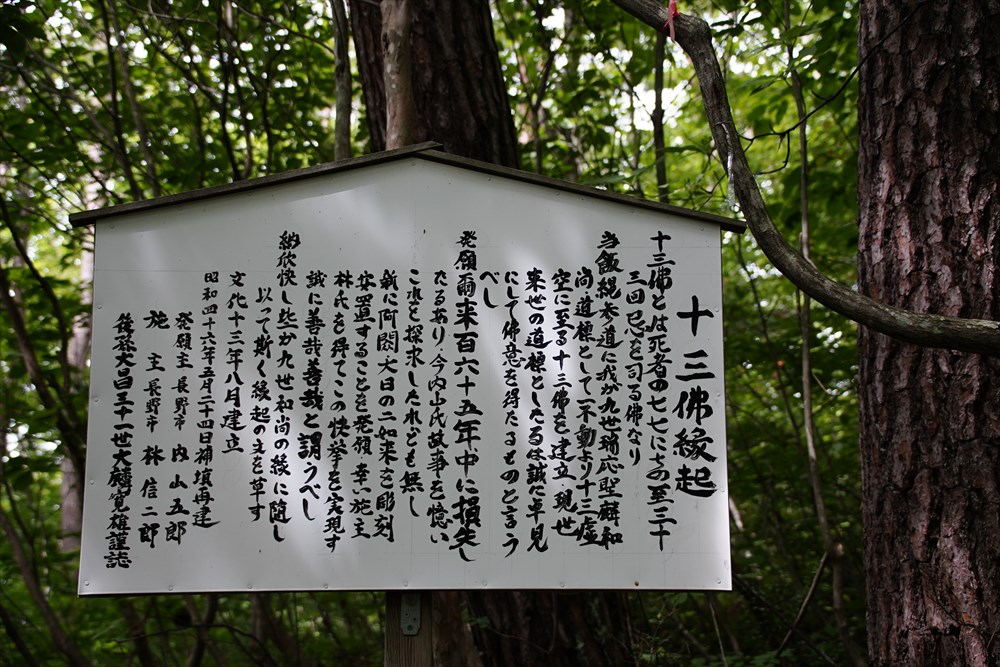 十三佛縁起
十三佛とは死者の七七に去り至三十
三回忌を司る佛なり
当飯縄本道に我が九世瑞応聖麟和
尚道標として一不動より十三虚
空に至る十三佛を建立 現世
来世の道標としたるは誠に卓見
にして佛意を得たるものと言う
べし
発願爾来百六十五年中に損失し
たるあり 今内山氏故事を憶い
これを探求したれども無し
新に阿閦大日の二如来を彫刻
安置することを発願 幸い施主
林氏を得てこの快挙を実現す
誠に善哉善哉と謂うべし
納欣快し些か九世和尚の縁に随し
以って斯く縁起の文を草す
文化十三年八月建立
昭和四十六年五月二十四日補填再建
発願主 長野市 内山五郎
施主 長野市 林信二郎
後孫大昌三十一世大 寛雄謹誌